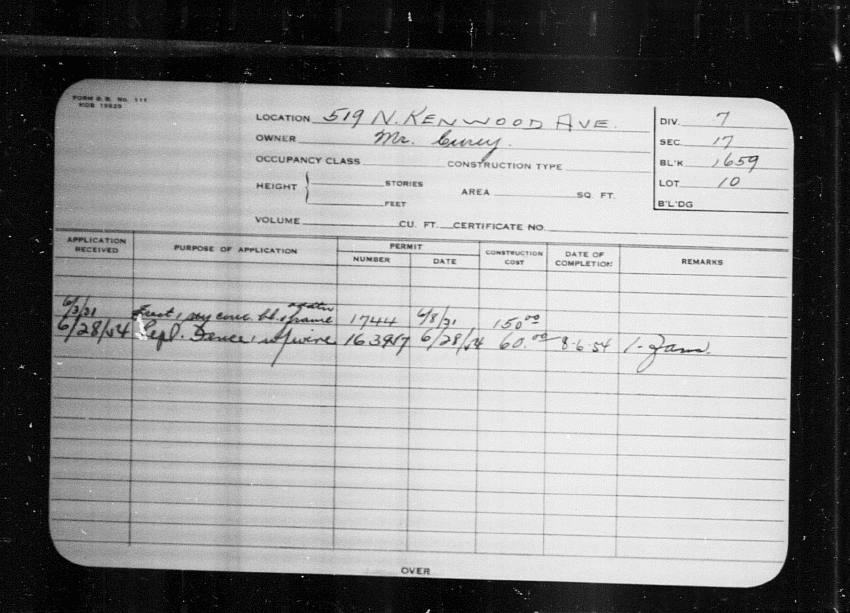 FORM B. B. No. 111
KOB 19829
LOCATION 519 N. KENWOOD AVE.
OWNER Mr.
OCCUPANCY CLASS CONSTRUCTION TYPE
HEIGHT STORIES FEET AREA SQ. FT.
VOLUME CU. FT. CERTIFICATE NO.
DIV. 7
SEC. 17
BL'K 1659
LOT 10
B'L'DG
APPLICATION RECEIVED PURPOSE OF APPLICATION PERMIT NUMBER DATE CONSTRUCTION COST DATE OF COMPLETION REMARKS
6/3/31 1 sty conc. bl. & frame 1744 6/8/31 150.00
6/28/54 Repl. Fence, w/wire 6/28/54 60.00 8-6-54 1-Fam.
OVER